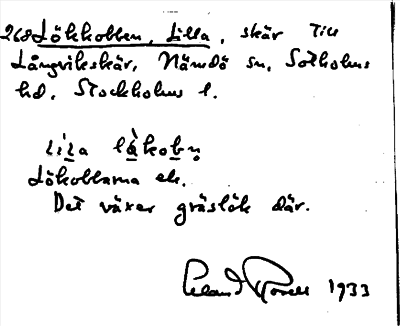 268 Lökkobben, Lilla, skär till
Långvikskär, Nämdö sn, Sotholms
hd, Stockholms l.
lila lὰkobn̥
Lökobbarna ek.
Det växer gräslök där.
1933